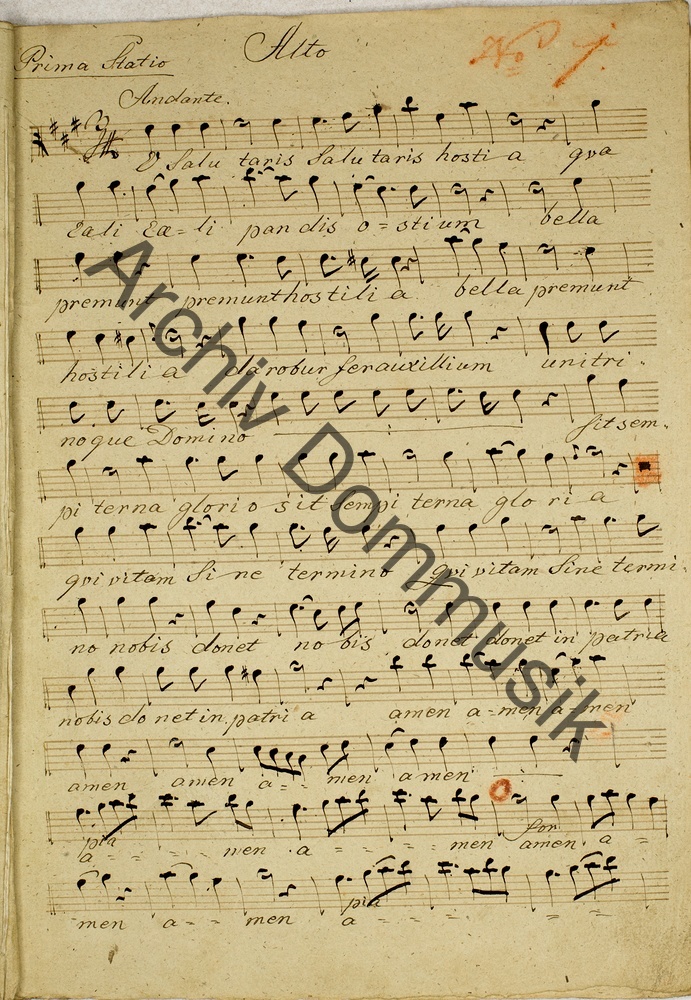 Prima Statio
Alto
No
Andante.
O Salu taris Salu taris hosti a qva
Cali Cæ= li pan dis o = stium bella
premunt premunt hostili a bella premunt
hostili a da robur fer auxillium uni tri -
no que Domino sit sem-
pi terna glori o sit sempi terna glo ri a
qvi vitam Si ne termino qvi vitam Sine termi-
no nobis donet no bis donet donet in patria
nobis do net in patri a amen a = men a = men
amen amen a = = men amen
pia for
a = = = = men a = = = = men amen a =
men a = = men a = = = = =
pia
Archiv Dommusik